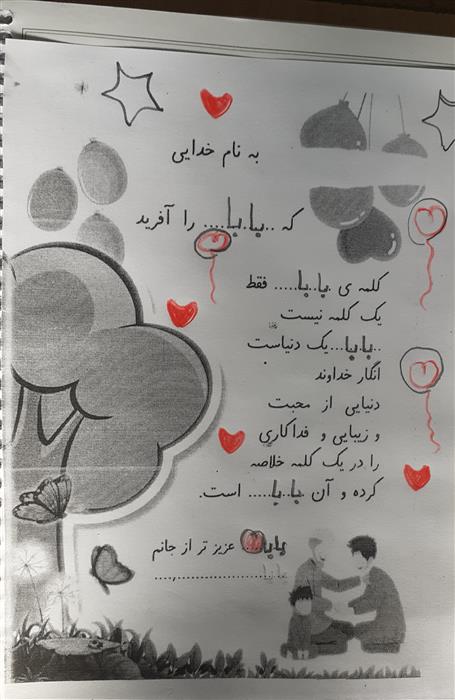 به نام خدایی
که ..بابا.... را آفرید
کلمه ی بابا..... فقط
یک کلمه نیست
..بابا...یک دنیاست
انگار خداوند
دنیایی از محبت
و زیبایی و فداکاری
را در یک کلمه خلاصه
کرده و آن بابا..... است.
بابا.... عزیز تر از جانم